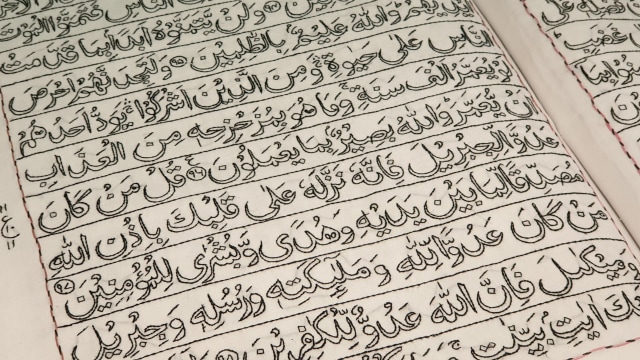 النَّاسِ فَتَمَنَّوُا الْمَوْتَ
وَلَنْ يَّتَمَنَّوْهُ اَبَدًۢا بِمَا قَدَّمَتْ
وَاللّٰهُ عَلِيْمٌۢ بِالظّٰلِمِيْنَ ٩٥ وَلَتَجِدَنَّهُمْ اَحْرَصَ
النَّاسِ عَلٰى حَيٰوةٍ وَمِنَ الَّذِيْنَ اَشْرَكُوْا يَوَدُّ اَحَدُهُمْ
لَوْ يُعَمَّرُ اَلْفَ سَنَةٍ وَمَا هُوَ بِمُزَحْزِحِهٖ مِنَ الْعَذَابِ
اَنْ يُّعَمَّرَ وَاللّٰهُ بَصِيْرٌۢ بِمَا يَعْمَلُوْنَ ٩٦ قُلْ مَنْ كَانَ
عَدُوًّا لِّجِبْرِيْلَ فَاِنَّهٗ نَزَّلَهٗ عَلٰى قَلْبِكَ بِاِذْنِ اللّٰهِ
مُصَدِّقًا لِّمَا بَيْنَ يَدَيْهِ وَهُدًى وَّبُشْرٰى لِلْمُؤْمِنِيْنَ ٩٧
مَنْ كَانَ عَدُوًّا لِّلّٰهِ وَمَلٰٓئِكَتِهٖ وَرُسُلِهٖ وَجِبْرِيْلَ
وَمِيْكٰىلَ فَاِنَّ اللّٰهَ عَدُوٌّ لِّلْكٰفِرِيْنَ ٩٨
اٰيٰتٍۢ بَيِّنٰتٍ